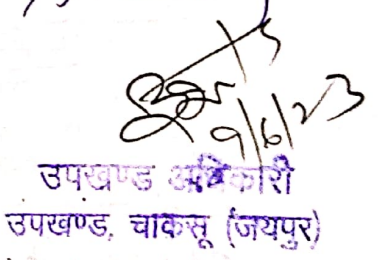 9/6/23
उपखण्ड अधिकारी
उपखण्ड, चाकसू (जयपुर)